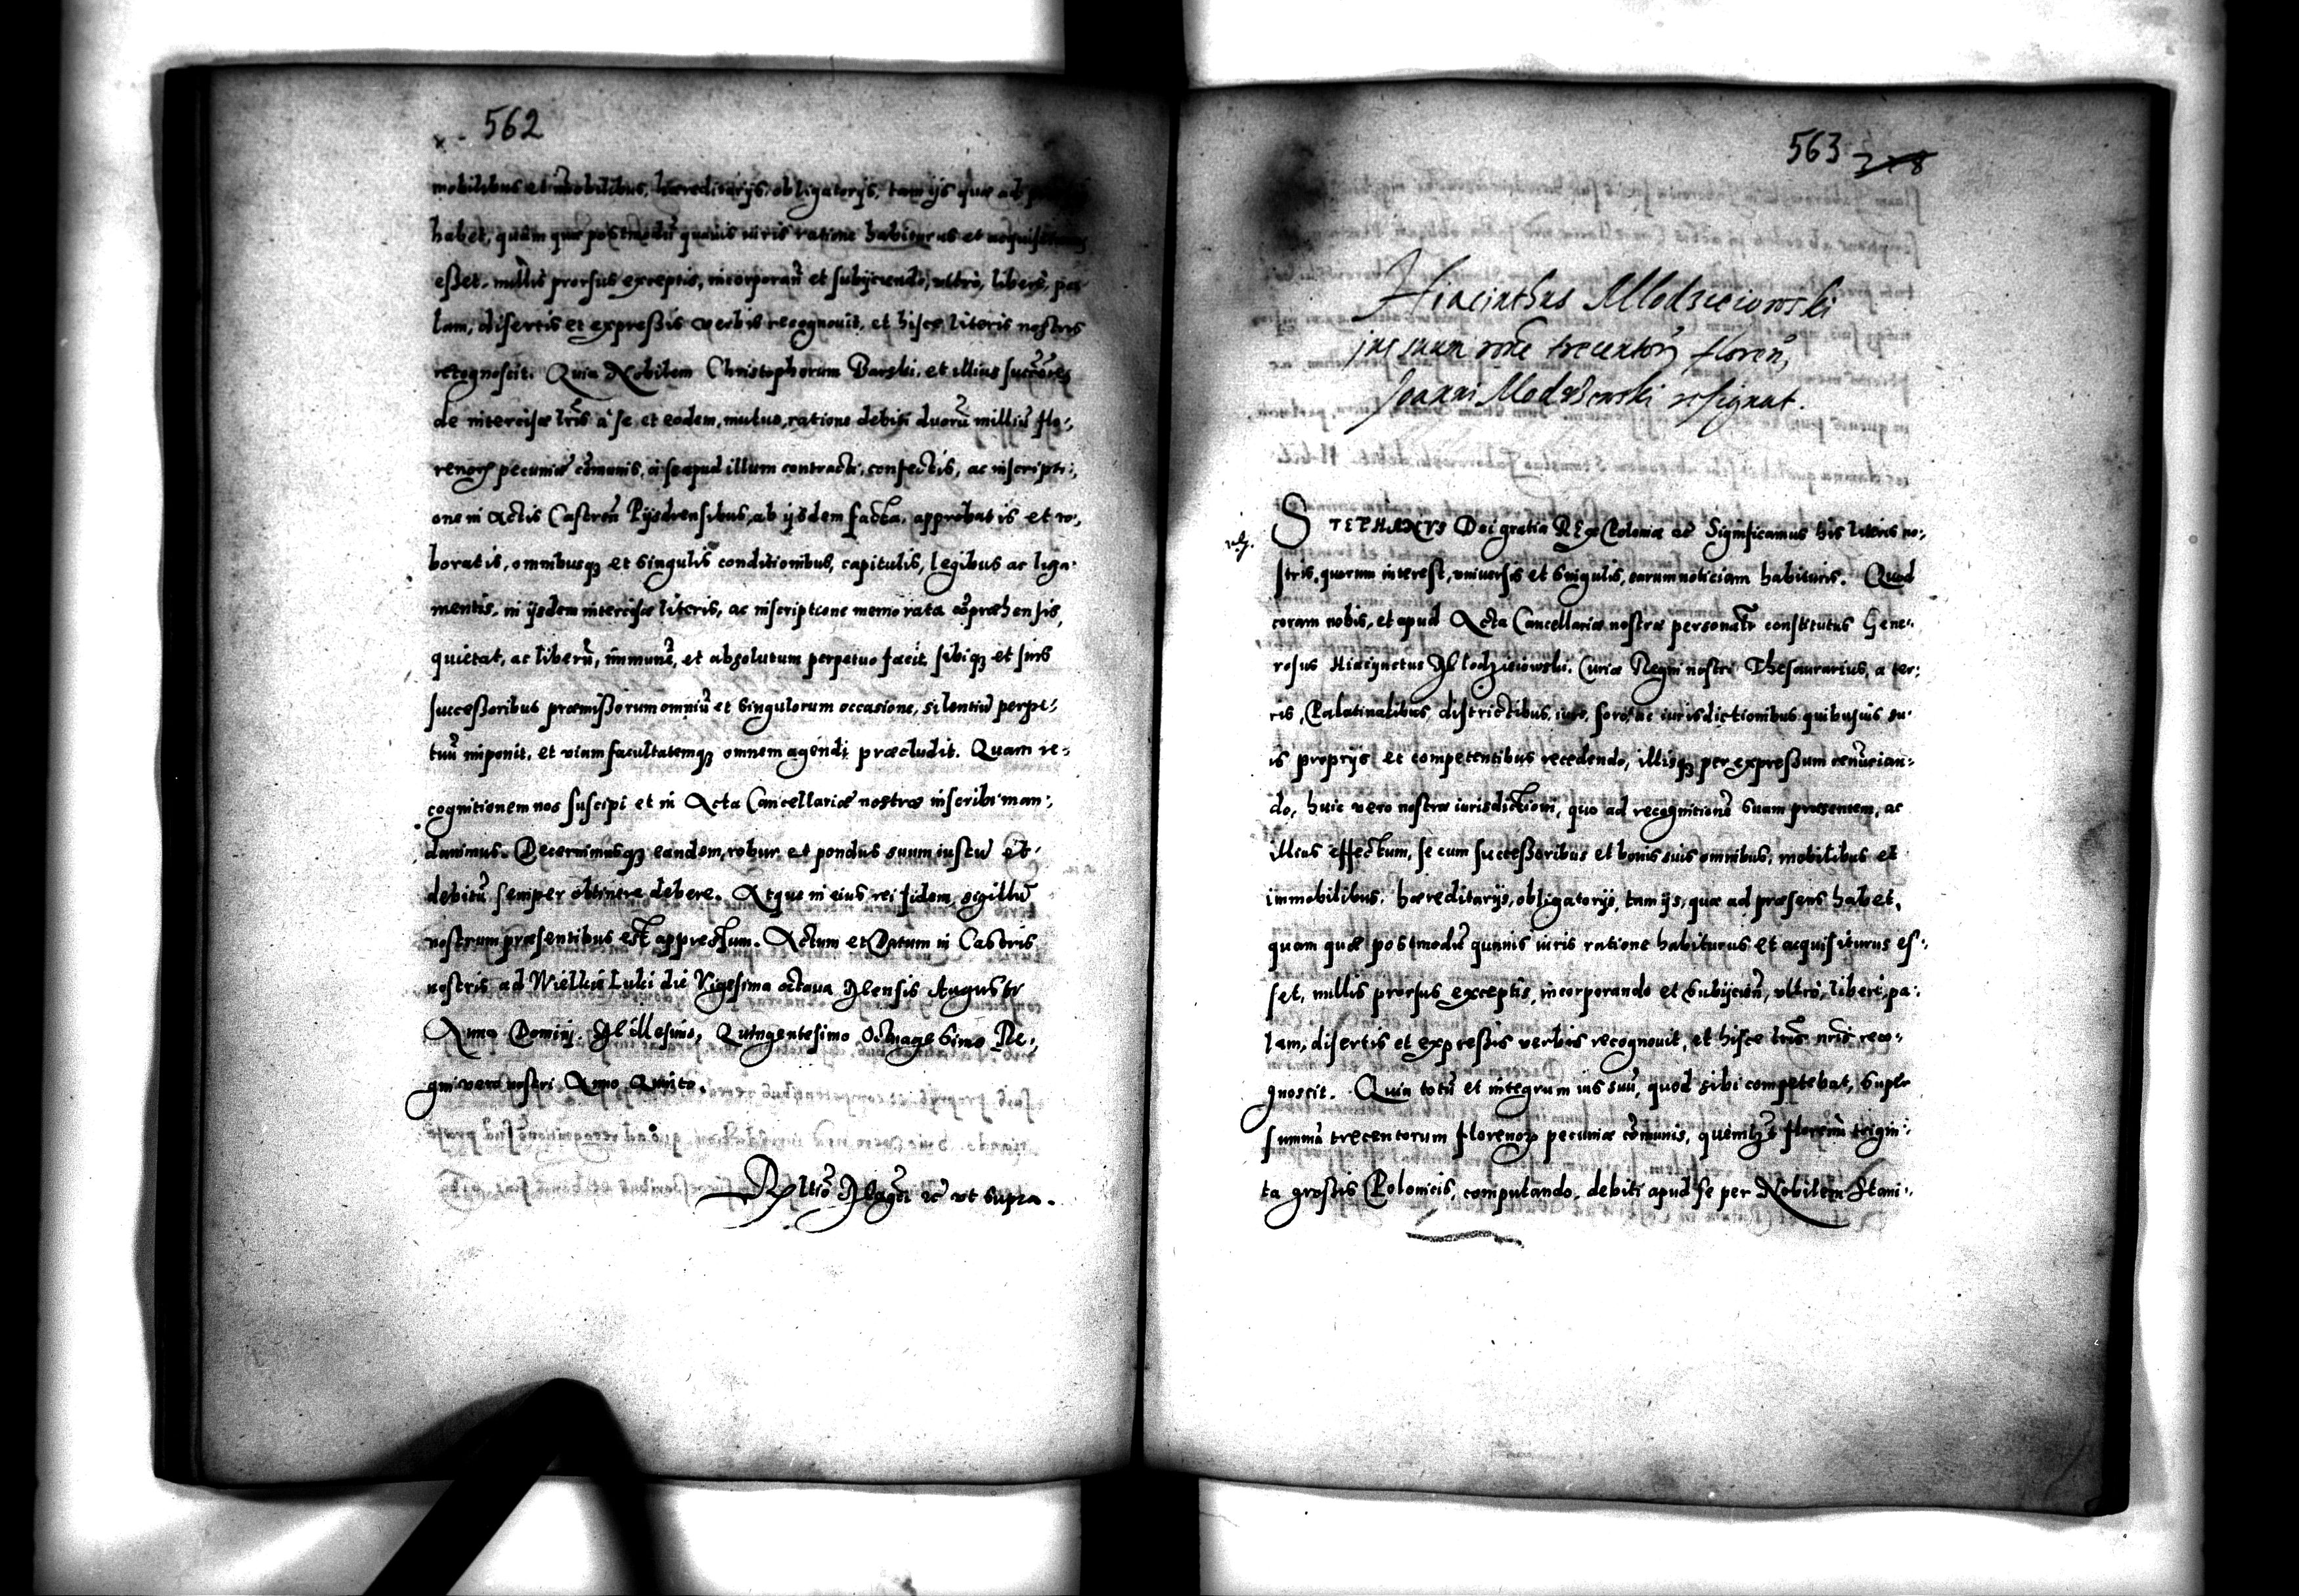 562
mobilibus et īmobilibus, hæreditarijs, obligatorijs, tam ijs quæ ad
habet, quàm quæ postmodū quauis iuris ratione habiturus et acquisiturus
eßet, nullis prorsus exceptis, incorporan̄ et subijciendo, ultrò, liberè, pa-
lam, disertis et expreßis verbis recognouit, et hisce literis nostris
recognoscit. Quia Nobilem Christophorum Barski, et illius succōres
de intercisæ lrīs à se et eodem, mutuo, ratione debiti duorū milliū flo-,
renorꝝ pecuniæ cōmunis, à se apud illum contracti, confectis, ac inscripti-,
one in Actis Castren̄ Pijsdrensibus, ab ijsdem facta, approbatis et ro-,
boratis, omnibusqꝫ et singulis conditionibus, capitulis, legibus ac liga-
mentis, in ijsdem intercisæ literis, ac inscriptione memorata cōpræhensis,
quietat, ac liberū, immunē, et absolutum perpetuo facit, sibiqꝫ et suis
succeßoribus præmißorum omniū et singulorum occasione, silentiū perpe-,
tuū imponit, et viam facultatemqꝫ omnem agendi præcludit. Quam re-,
cognitionem nos suscipi et in Acta Cancellariæ nostræ inscribi man-,
dauimus. Decernimusqꝫ eandem, robur et pondus suum iustū et
debitū semper obtinere debere. Atque in eius rei fidem, sigillū
nostrum præsentibus est appressum. Actum et Datum in Castris
nostris ad Wielkie Luki die Vigesima octaua Mensis Augusti
Anno Domini Millesimo, Quingentesimo Octuagesimo Re-,
gni vero nostri Anno Quinto.
Rltio Magci ꝛc̄ vt supra.
563 218
Hiacinthus Mlodzieiowski
jus suum rōne trecentorꝝ floren̄,
Joanni Modrzewski resignat.
STEPHANVS Dei gratia REX Poloniæ ꝛc̄ Significamus his literis no-,
stris, quorum interest, vniuersis et singulis, earum noticiam habituris. Quod
coram nobis, et apud Acta Cancellariæ nostræ personalr̄ constitutus Gene-,
rosus Hiacynctus Mlodzieiowski, Curiæ Regni nostri Thesaurarius, a ter-,
ris, Palatinatibus, districtibus, iure, foro, ac iurisdictionibus quibusuis su-
is proprijs et competentibus recedendo, illisqꝫ per expreßum renūcian-,
do, huic vero nostræ iurisdictioni, quo ad recognitionē suam præsentem, ac
illius effectum, se cum succeßoribus et bonis suis omnibus, mobilibus et
immobilibus, hæreditarijs, obligatorijs, tam ijs, quæ ad præsens habet,
quam quæ postmodū quauis iuris ratione habiturus et acquisiturus es-,
set, nullis prorsus exceptis, incorporando et subijcien̄, vltrò, liberè, pa-,
lam, disertis et expreßis verbis recognouit, et hisce lrīs nrīs reco-,
gnoscit. Quia totū et integrum ius suū, quod sibi competebat, super
summa trecentorum florenorꝝ pecuniæ cōmunis, quemlꝫ florenū trigin-,
ta großis Polonicis, computando, debiti apud se per Nobilem Stani-,